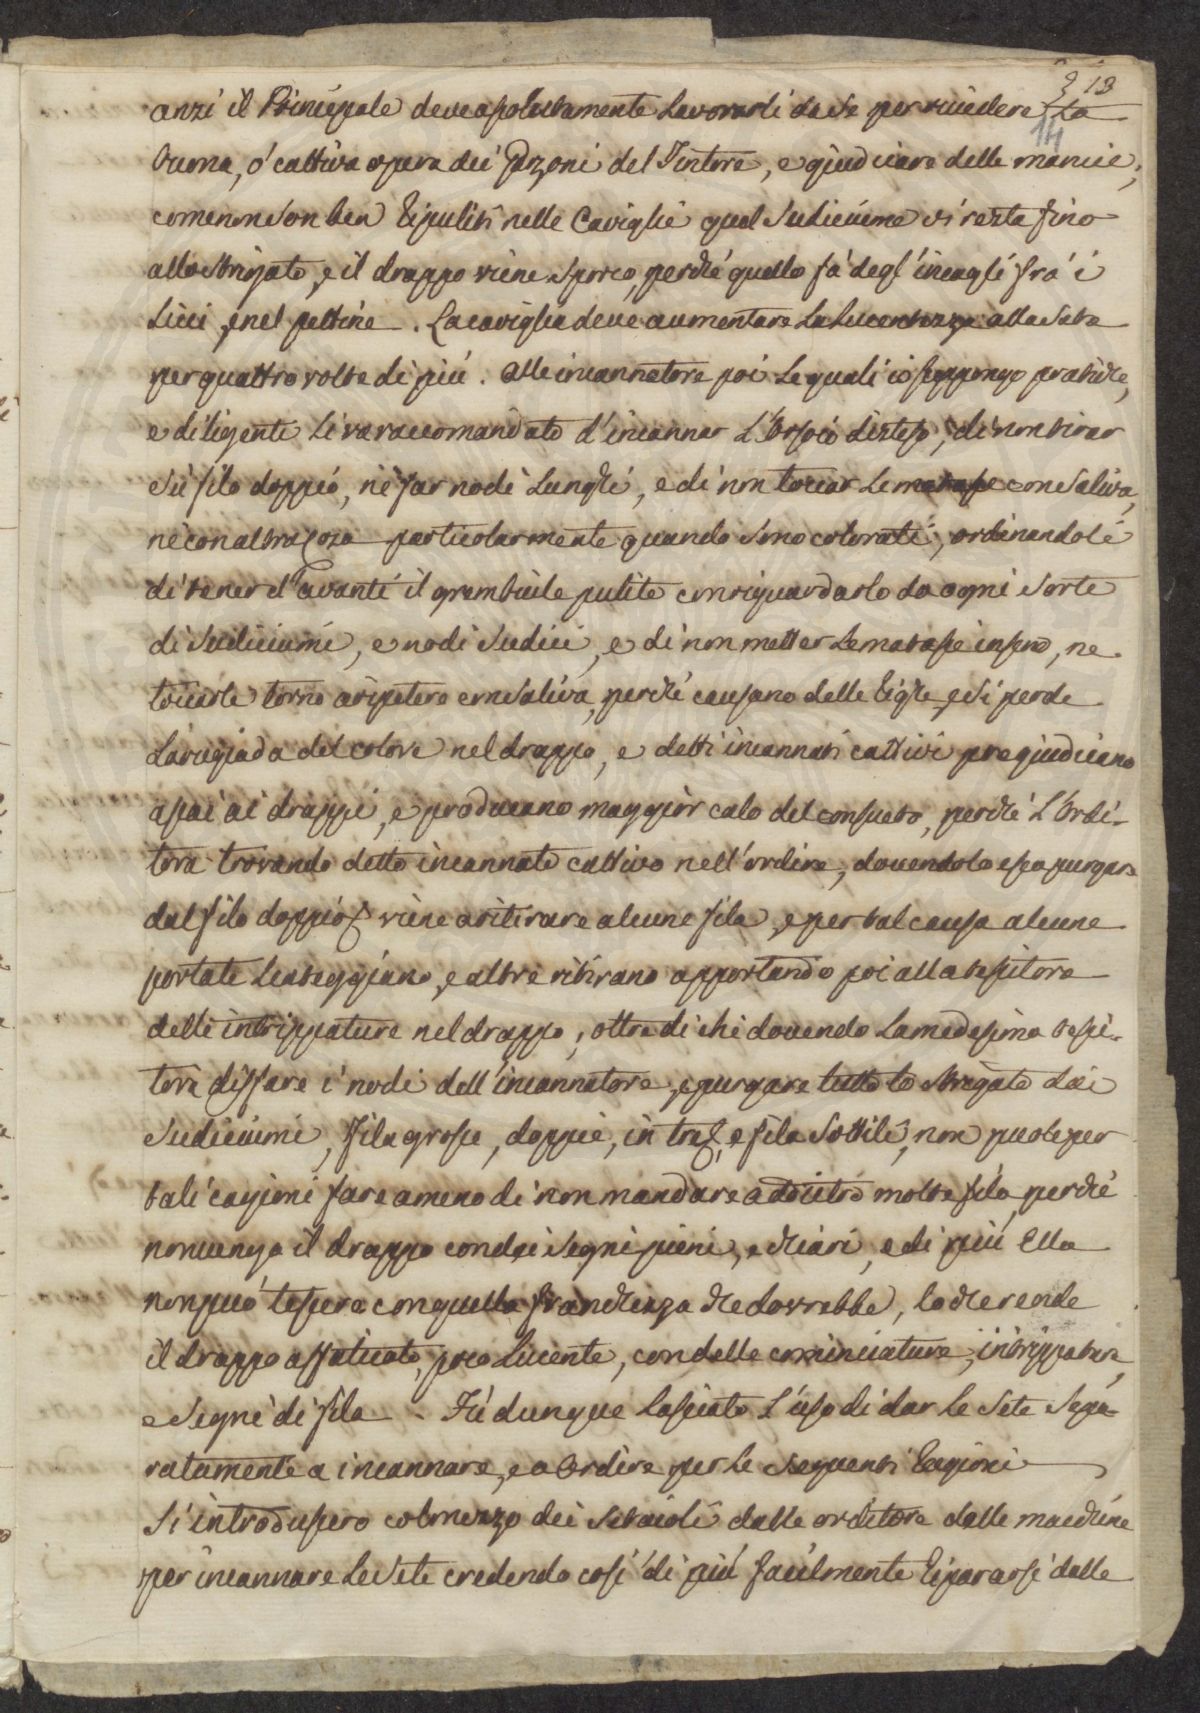 13
14
anzi il Principale deve assolutamente lavorarli da se per vincere la
buona, ó cattiva opera dei Garzoni del Tintore, e giudicare delle mancie;
come non son ben ripuliti nelle Caviglie quel sudiciume vi resta fino
allo strigato, e il drappo viene sporco, perché quello fá degl'incagli frá i
Licci, e nel pettine. La caviglia deve aumentare la lucentezza alla Seta
per quattro volte di più. Alle incannatore poi le quali io suppongo pratiche,
e diligenti li va raccomandato d'incannar L'Orsoio disteso, di non tirar
sù filo doppio, né far nodi lunghi, e di non toccar le matasse con saliva,
né con altra cosa particolarmente quando sono colorati, ordinandole
di tener d'avanti il grembiule pulito con riguardarlo da ogni sorte
di sudiciumi, e nodi sudici, e di non metter le matasse in seno, ne
toccarle torno a ripetere con saliva, perché causano delle righe, e si perde
la rugiada del colore nel drappo, e detti incannati cattivi pregiudicano
assai ai drappi, e producano maggior calo del consueto, perché L'Ordi-
tora trovando detto incannato cattivo nell'ordire, dovendolo essa purgare
dal filo doppio viene a ritirare alcune fila, e per tal causa alcune
portate leateggiano, e altre ritirano apportando poi alla tessitora
delle intrippature nel drappo; oltre di chi dovendo la medesima tessi-
tora disfare i nodi dell'incannatore, e purgare tutto lo strigato dai
sudiciumi, fila grosse, doppie, in tra, e fila sottili, non puote per
tali cagioni fare ameno di non mandare addietro molte fila, perché
non venga il drappo con dei segni pieni, e chiari, e di più Ella
non può tessere con quella franchezza che dovrebbe, lo che rende
il drappo affaticato, poco lucente, con delle cominciature, intrippature,
e segni di fila. Fù dunque lasciato l'uso di dar le sete sepa-
ratamente a incannare, e a Ordire per le seguenti ragioni
Si introdussero col mezzo dei Setaioli dalle orditore delle macchine
per incannare le sete credendo così di più facilmente ripararsi dalle